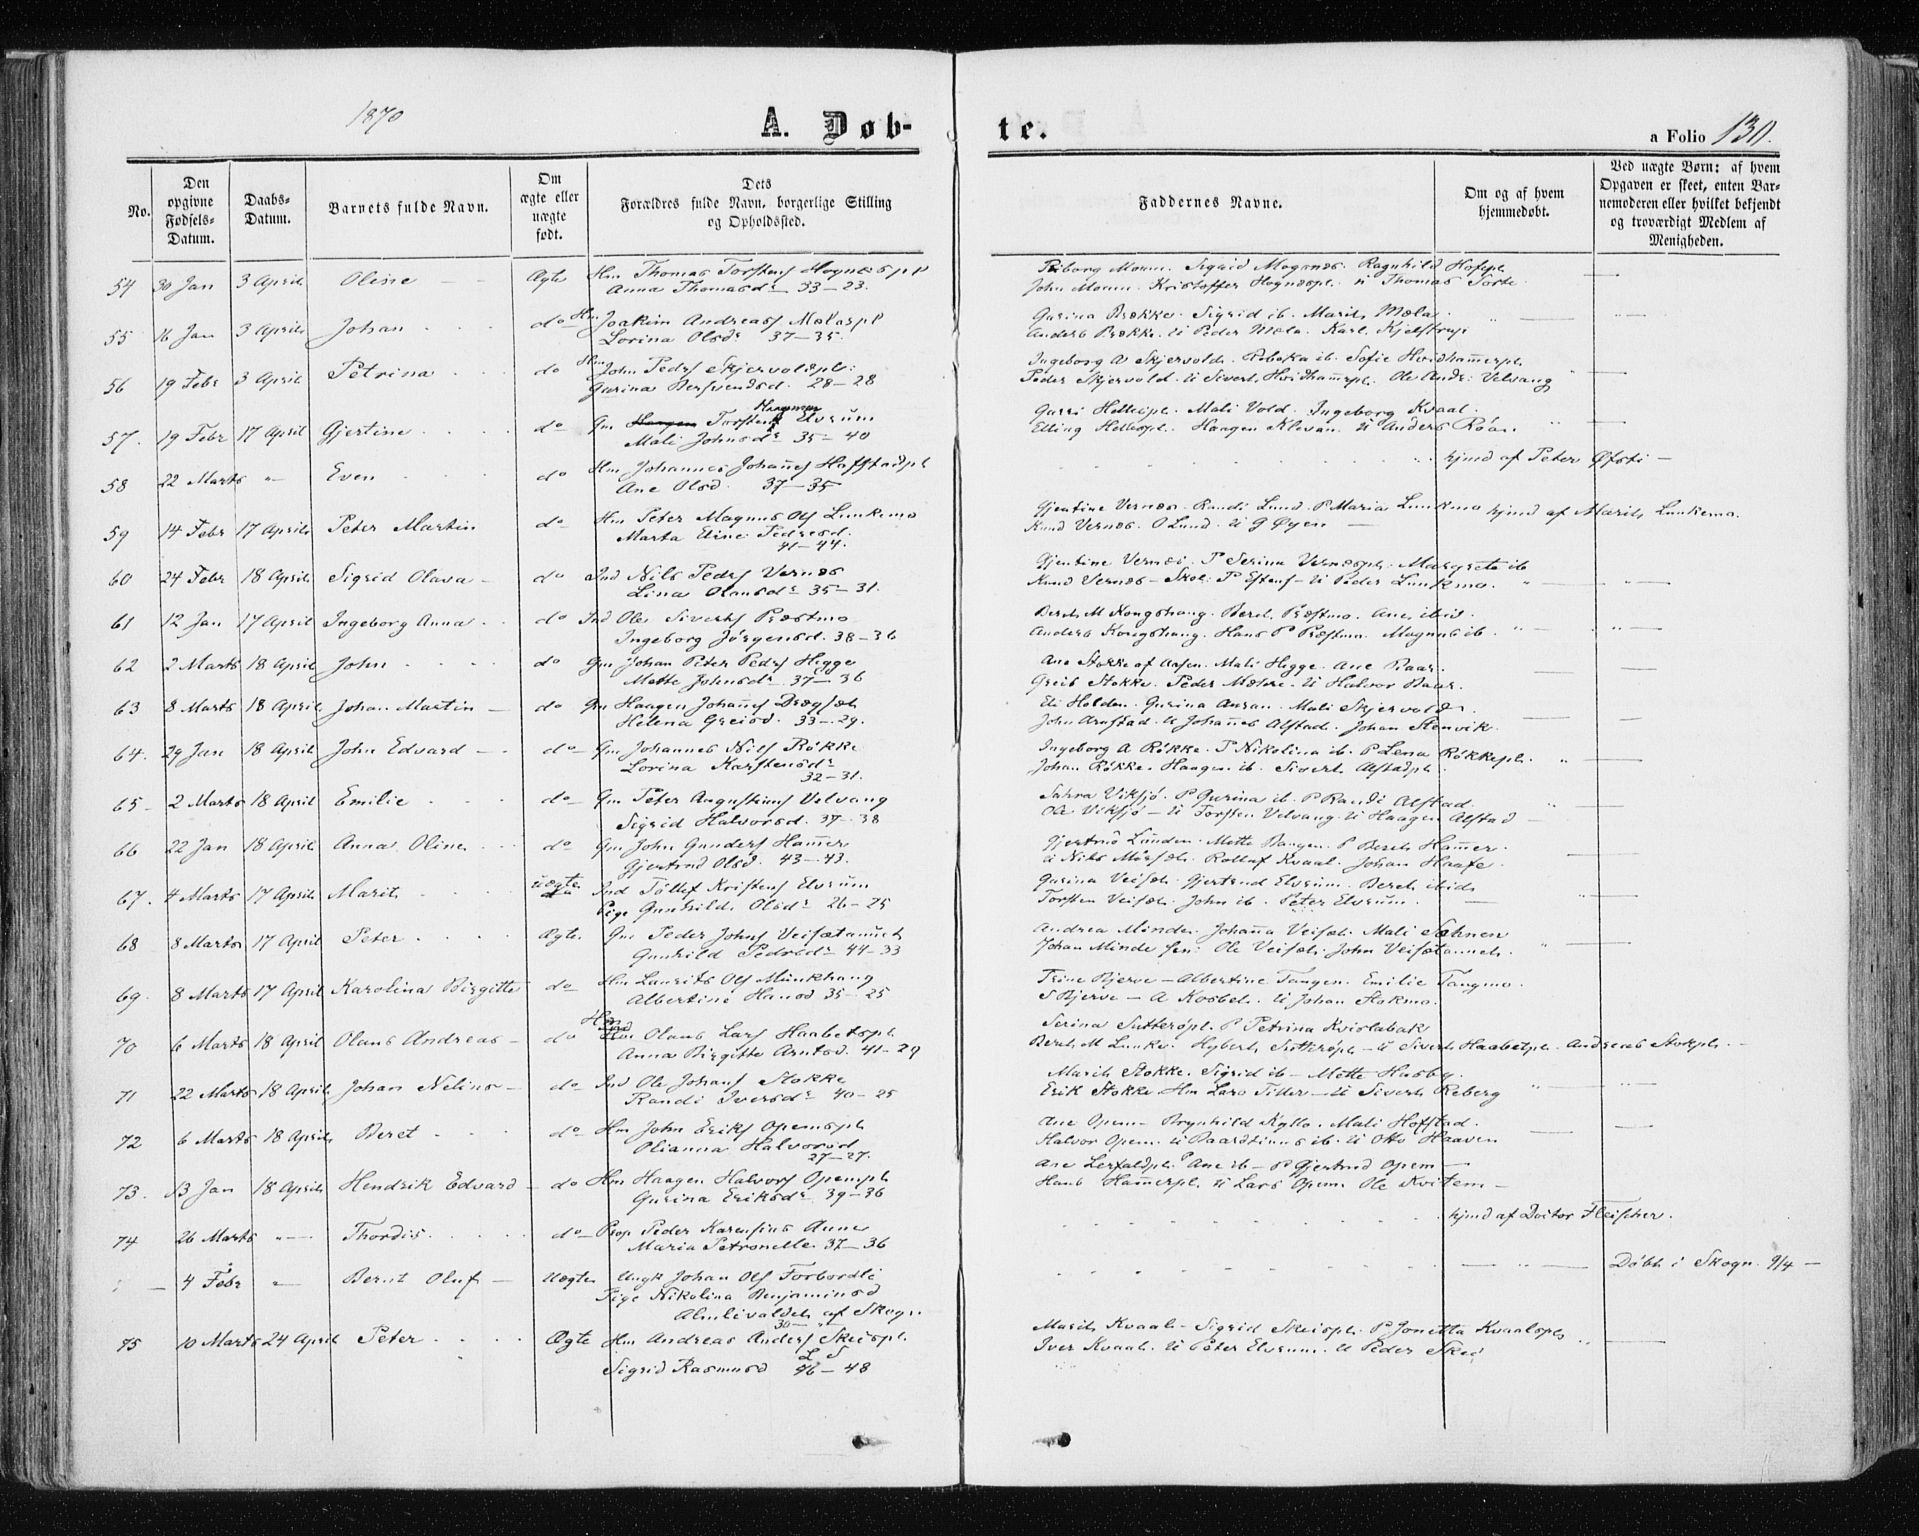 1870
A. Døb-
te.
a Folio 130.
No.
Den opgivne Fødsels-Datum.
Daabs-Datum.
Barnets fulde Navn.
Om ægte eller uægte født.
Dets Forældres fulde Navn, borgerlige Stilling og Opholdssted.
Faddernes Navne.
Om og af hvem hjemmedøbt.
Ved uægte Børn: af hvem Opgaven er skeet, enten Barnemoderen eller hvilket bekjendt og troværdigt Medlem af Menigheden.
54 30 Jan 3 April Oline Ægte Hm Thomas Torstens Hognespl
Anna Thomasdr 53-23.
Momn. Sigrid Mogenæs. Ragnhild Hofpl
John Momn. Kristoffer Hognæspl. U Thomas Torte
55 16 Jan 3 April Johan do Hm Joakim Andreass Mælaspl
Lorina Olsdr 37-35.
Gurina Brække. Sigrid ib. Marith Mæla
Anders Brække. U Peder Mæla. Karl Kjelstrup
56 19 Febr 3 April Petrina do Hm John Peds Skjervoldspl:
Gurina Bersvendsd. 28-28
Ingeborg A Skjervold. Rebeka ib. Sofie Hvidhamerpl
Peder Skjervold. U Sivert Hvidhamerpl. Ole Andr: Velvang
57. 19 Febr 17 April Gjertine do Gm Torsten Haagensen Elvrum
Mali Johnsdr 35-40
Gurri Hellespl. Mali Vold. Ingeborg Kvaal.
Elling Hellespl. Haagen Klevan. U Anders Röan
58 22 Marts " Even do Hm Johannes Johans Hoffstadpl
Ane Olsd. 37-35
hjmd af Peter Øfsti
59 14 Febr 17 April Peter Martin do Hm Peter Magnus Ols Lunkemo
Marta Eline Pedersd.
41-44.
Gjentine Vernæs. Randi Lund. P Maria Lunkmo hjmd af Marith Lunkemo.
Knud Vernæs. O Lund. U G Øyen
60 24 Febr 18 April Sigrid Olava do Ind Nils Peds Vernæs
Lina Olausdr 35-31.
Gjentine Vernæs. P Serina Vernæspl. Margrete ib
Knud Vernæs U Peder Lunkmo.
61 12 Jan 17 April Ingeborg Anna do Ind Ole Siverts Præstmo
Ingeborg Jörgensd. 38-36
Bereth M Kongshaug. Bereth Præstmo. Ane ibid.
Anders Kongshaug. Hans P Præstmo. Magnus ib.
62 2 Marts 18 April John do Gm Johan Peter Peds Higge
Mette Johnsdr 37-36
Ane Stokke af Aasen. Mali Higge. Ane Baar.
Greis Stokke. Peder Mæhre. U Halvor Baar.
63 8 Marts 18 April Johan Martin do Gm Haagen Johans Drægset
Helena Greisd. 33-29.
Eli Holden. Gurina Auran. Mali Skjervold
John Arnstad. U Johanes Alstad. Johan Stenvik
64. 29 Jan 18 April John Edvard do Gm Johannes Nils Rökke
Lorina Karstensdr
32-31.
Ingeborg A Rökke. P Nikolina ib. P Lena Rökkespl.
Johan Rökke. Haagen ib. Siverth Alstadpl.
65 2 Marts 18 April Emilie do Gm Peter Augustinus Velvang
Sigrid Halvorsd. 37-38
Sahra Viksjö. P Gurina ib. P Randi Alstad.
Ole Viksjö U Torsten Velvang. U Haagen Alstad
66 22 Jan 18 April Anna Oline do Gm John Gunders Hamer
Gjertrud Olsd. 43-43.
Gjertrud Lunden. Mette Bangen. P Bereth Hamer.
U Nils Mörset. Rollaf Kvaal. Johan Haafe.
67. 4 Marts 17 April Marit uægte Ind Töllef Kristens Elvrum
Pige Gunhild Olsdr 26-25
Gurina Veiset. Gjertrud Elvrum. Bereth ibid
Torsten Veiset. John ib. Peter Elvrum.
68 8 Marts 17 April Peter Ægte Gm Peder Johns Veisætaunet
Gunhild Pedersdr 44-33
Andrea Minde. Johana Veiset. Mali Sæhnen
Johan Minde sen: Ole Veiset. John Veisætaunet.
69. 8 Marts 17 April Karolina Birgitte do Hm Laurits Ols Munkhaug
Albertine Hansd 35-25
Trine Bjerve Albertine Tangen. Emilie Tangmo.
S Bjerve A Kosbet. U Johan Stokmo.
70 6 Marts 18 April Olaus Andreas do Olaus Lars Haabetspl
Anna Birgitte Arntsd. 41-29
Serina Sutteröpl. P Petrina Kvislabak
Bereth M Lunke. Hybert Sutteröpl U Siverth Haabetpl. Andreas Stokpl.
71 22 Marts 18 April Johan Nelius do Ind Ole Johans Stokke
Randi Iversdr 40-25
Marith Stokke. Sigrid ib Mette Husby.
Erik Stokke Hm Lars Tiller U Siverth Reberg
72 6 Marts 18 April Beret do Hm John Eriks Opemspl
Olianna Halvorsd
27-27.
Ane Opem Brynhild Kyllo. Mali Hofstad.
Halvor Opem. U Baardtinus ib. U Otto Haaven
73. 13 Jan 18 April Hendrik Edvard do Hm Haagen Halvors Opempl
Gurina Eriksdr 39-36
Ane Lerfaldpl. P Ane ib P Gjertrud Opem
Hans Hamerpl. U Lars Opem Ole Kvitem
74 26 Marts " Thordis do Prop Peder Karensius Anne
Maria Petronelle. 37-36
hjmd af Doctor Fleischer.
4 Febr " Bernt Oluf Uægte Ungk Johan Ols Forbordli
Pige Nikolina Benjaminsd
Almlivaldet af Skogn
30
Döbt i Skogn 9/4
75 10 Marts 24 April Peter Ægte Hm Andreas Anders Skeispl.
L S
Sigrid Rasmusd 46-48
Marith Kvaal Sigrid Skeispl. P Jonetta Kvaalspl
Iver Kvaal. U Peter Elvrum. U Peder Skei